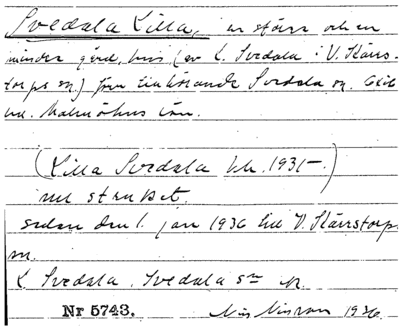 Svedala Lilla, en större och en
mindre gård, hus (av L. Svedala i V. Kärrs-
torps sn) förr tillhörande Svedala sn. Oxie
hd. Malmöhus län.
(Lilla Svedala bl. 1931–)
nu struket.
sedan den 1. jan 1936 till V. Kärrstorps
sn.
L. Svedala. Svedala sn
Nr 5743.
Nils Nilsson 1936.